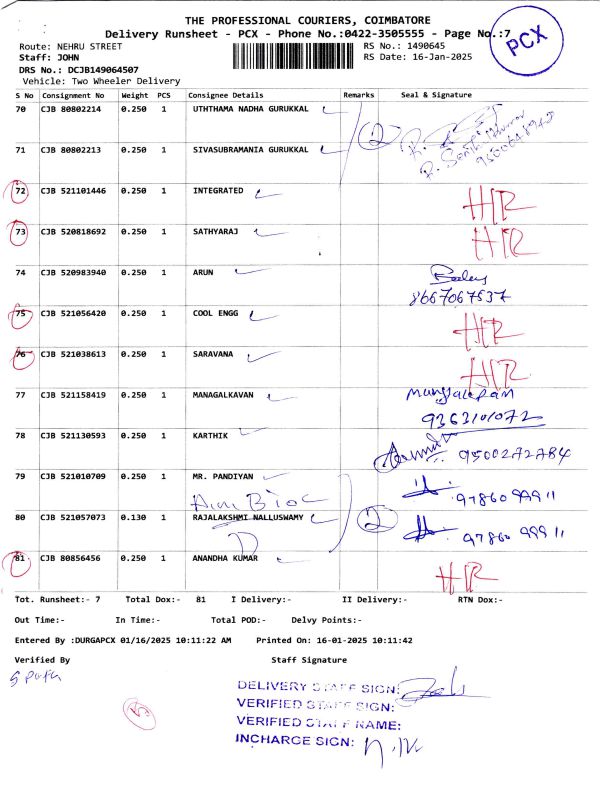 THE PROFESSIONAL COURIERS, COIMBATORE
Delivery Runsheet - PCX - Phone No.:0422-3505555 - Page No.:7
PCX
Route: NEHRU STREET
RS No.: 1490645
Staff: JOHN
RS Date: 16-Jan-2025
DRS No.: DCJB149064507
Vehicle: Two Wheeler Delivery
S No Consignment No Weight PCS Consignee Details Remarks Seal & Signature
70 CJB 80802214 0.250 1 UTHTHAMA NADHA GURUKKAL
2
71 CJB 80802213 0.250 1 SIVASUBRAMANIA GURUKKAL
72 CJB 521101446 0.250 1 INTEGRATED HR
73 CJB 520818692 0.250 1 SATHYARAJ HR
74 CJB 520983940 0.250 1 ARUN
8667067537
75 CJB 521056420 0.250 1 COOL ENGG HR
76 CJB 521038613 0.250 1 SARAVANA HR
77 CJB 521158419 0.250 1 MANAGALKAVAN
9363101072
78 CJB 521130593 0.250 1 KARTHIK 9500272784
79 CJB 521010709 0.250 1 MR. PANDIYAN 97860 99911
80 CJB 521057073 0.130 1 RAJALAKSHMI NALLUSWAMY 2 97860 99911
81 CJB 80856456 0.250 1 ANANDHA KUMAR HR
Tot. Runsheet:- 7 Total Dox:- 81 I Delivery:- II Delivery:- RTN Dox:-
Out Time:- In Time:- Total POD:- Delvy Points:-
Entered By :DURGAPCX 01/16/2025 10:11:22 AM Printed On: 16-01-2025 10:11:42
Verified By Staff Signature
DELIVERY STAFF SIGN:
VERIFIED STAFF SIGN:
VERIFIED STAFF NAME:
INCHARGE SIGN: